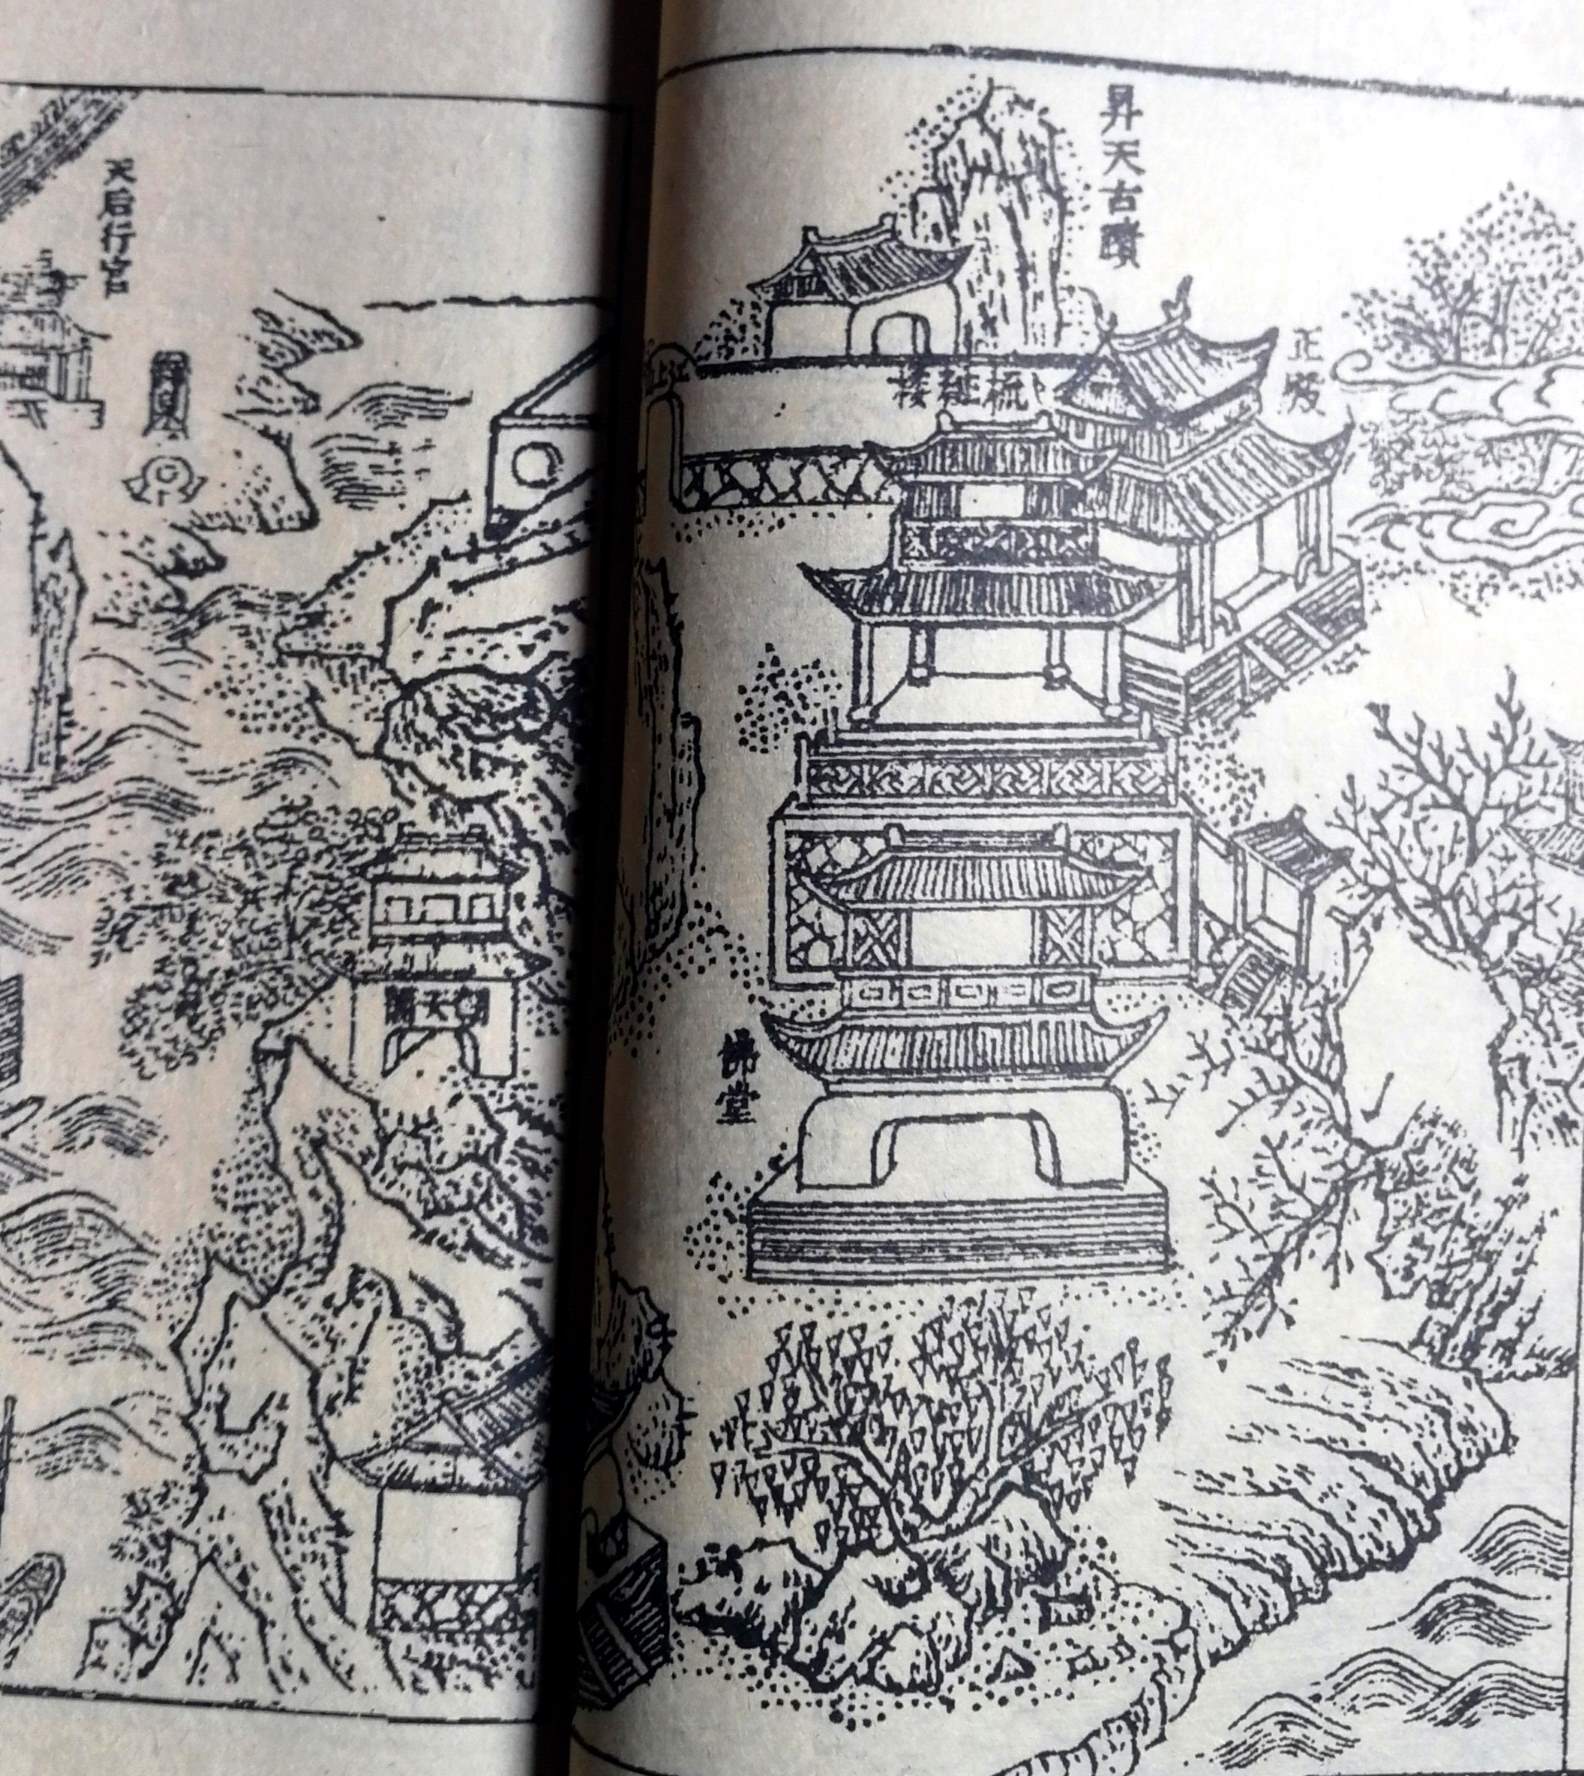 昇天古蹟
正殿
梳粧樓
佛堂
朝天閣
天后行宮